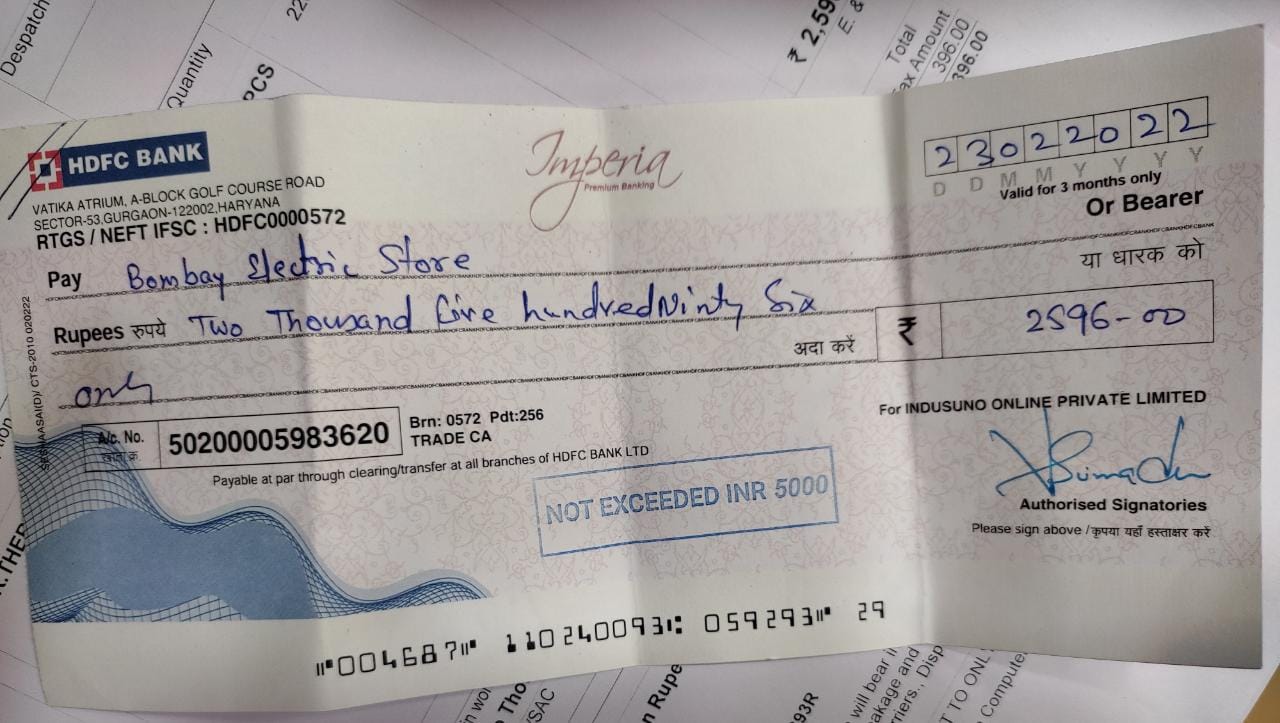 Despatch
Quantity
PCS
22
₹ 2,59
E. &
Total
ax Amount
396.00
396.00
HDFC BANK
VATIKA ATRIUM, A-BLOCK GOLF COURSE ROAD
SECTOR-53,GURGAON-122002,HARYANA
RTGS / NEFT IFSC : HDFC0000572
Imperia
Premium Banking
2 3 0 2 2 0 2 2
D D M M Y Y Y Y
Valid for 3 months only
Or Bearer
Pay Bombay Electric Store
या धारक को
Rupees रुपये Two Thousand five hundred Ninty Six
only
अदा करें
₹ 2596-00
A/c. No.
खाता क्र.
50200005983620
Brn: 0572 Pdt:256
TRADE CA
Payable at par through clearing/transfer at all branches of HDFC BANK LTD
NOT EXCEEDED INR 5000
For INDUSUNO ONLINE PRIVATE LIMITED
Authorised Signatories
Please sign above / कृपया यहाँ हस्ताक्षर करें
CTS-2010 020222
⑈004687⑈ 110240093⑆ 059293⑈ 29
will bear
akage and
rriers., Disp
T TO ONL
Compute
n Rupe
93R
SAC